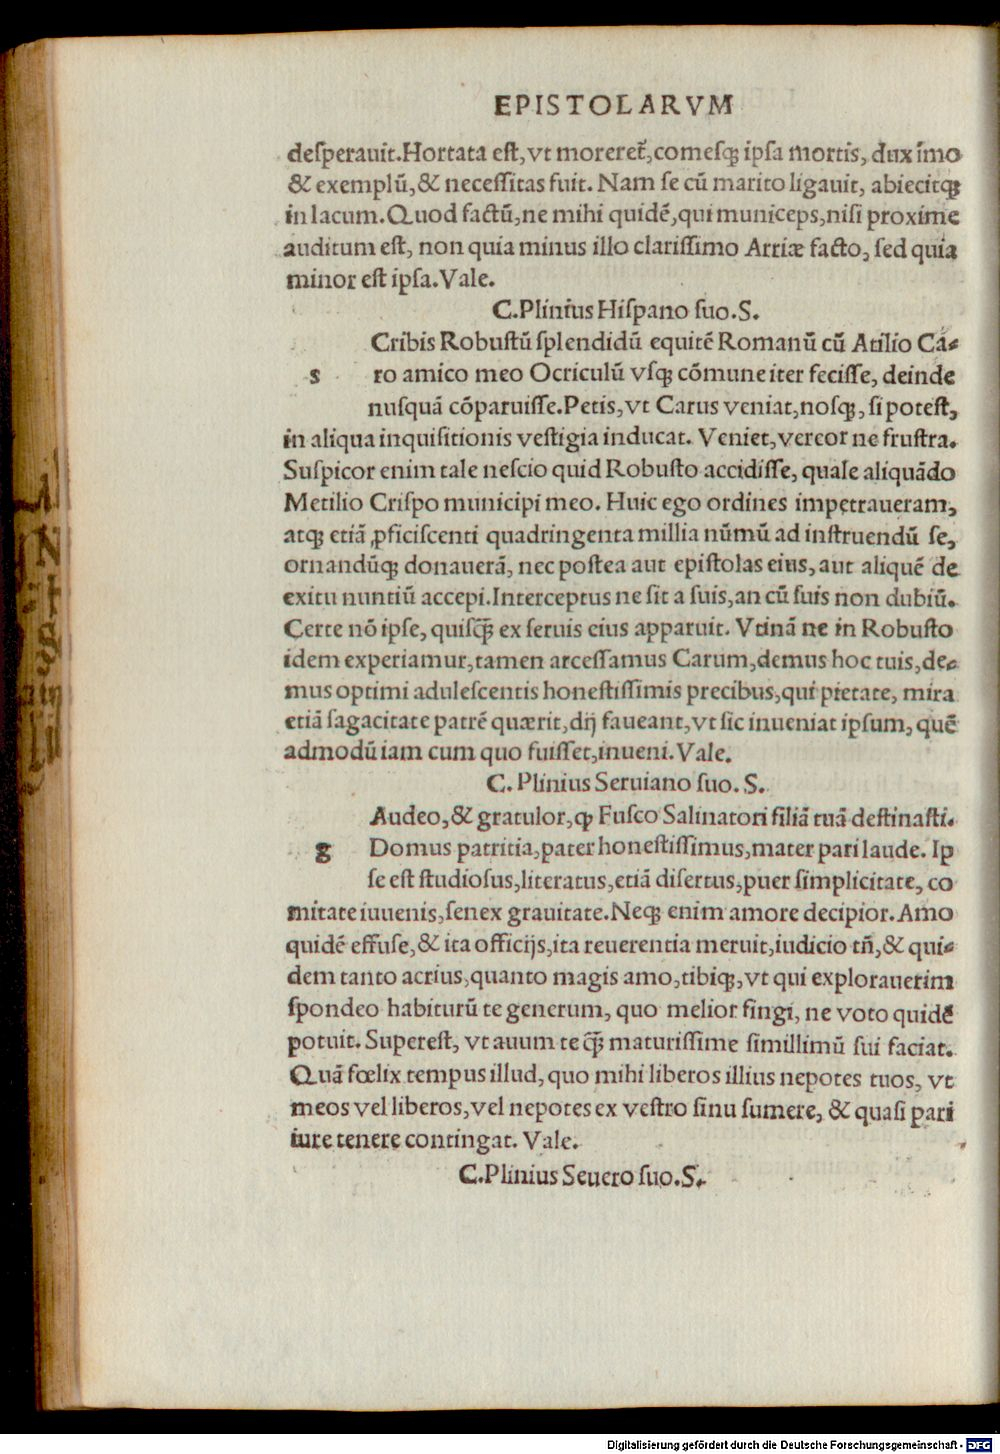 EPISTOLARVM
desperauit.Hortata est,vt moreret᷑,comesq; ipsa mortis, dux ĩmo
& exemplũ,& necessitas fuit. Nam se cũ marito ligauit, abiecitq;
in lacum.Quod factũ,ne mihi quidẽ,qui municeps,nisi proxime
auditum est, non quia minus illo clarissimo Arriæ facto, sed quia
minor est ipsa.Vale.
C.Plinius Hispano suo.S.
Cribis Robustũ splendidũ equitẽ Romanũ cũ Atilio Ca-
s ro amico meo Ocriculũ vsq; cõmune iter fecisse, deinde
nusquã cõparuisse.Petis,vt Carus veniat,nosq;, si potest,
in aliqua inquisitionis vestigia inducat. Veniet,vereor ne frustra.
Suspicor enim tale nescio quid Robusto accidisse, quale aliquãdo
Metilio Crispo municipi meo. Huic ego ordines impetraueram,
atq; etiã ꝓficiscenti quadringenta millia nũmũ ad instruendũ se,
ornandũq; donauerã, nec postea aut epistolas eius, aut aliquẽ de
exitu nuntiũ accepi.Interceptus ne sit a suis,an cũ suis non dubiũ.
Certe nõ ipse, quisq̃ ex seruis eius apparuit. Vtinã ne in Robusto
idem experiamur,tamen arcessamus Carum,demus hoc tuis,de-
mus optimi adulescentis honestissimis precibus,qui pietate, mira
etiã sagacitate patrẽ quærit,dij faueant,vt sic inueniat ipsum, quẽ
admodũ iam cum quo fuisset,inueni.Vale.
C. Plinius Seruiano suo. S.
Audeo,& gratulor,ꝙ Fusco Salinatori filiã tuã destinasti.
g Domus patritia,pater honestissimus,mater pari laude. Ip
se est studiosus,literatus,etiã disertus,puer simplicitate, co
mitate iuuenis,senex grauitate.Neq; enim amore decipior.Amo
quidẽ effuse,& ita officijs,ita reuerentia meruit,iudicio tñ,& qui-
dem tanto acrius,quanto magis amo,tibiq;,vt qui explorauerim
spondeo habiturũ te generum, quo melior fingi, ne voto quidẽ
potuit. Superest, vt auum te q̃ maturissime simillimũ sui faciat.
Quã fœlix tempus illud, quo mihi liberos illius nepotes tuos, vt
meos vel liberos,vel nepotes ex vestro sinu sumere, & quasi pari
iure tenere contingat. Vale.
C.Plinius Seuero suo.S.
Digitalisierung gefördert durch die Deutsche Forschungsgemeinschaft - DFG